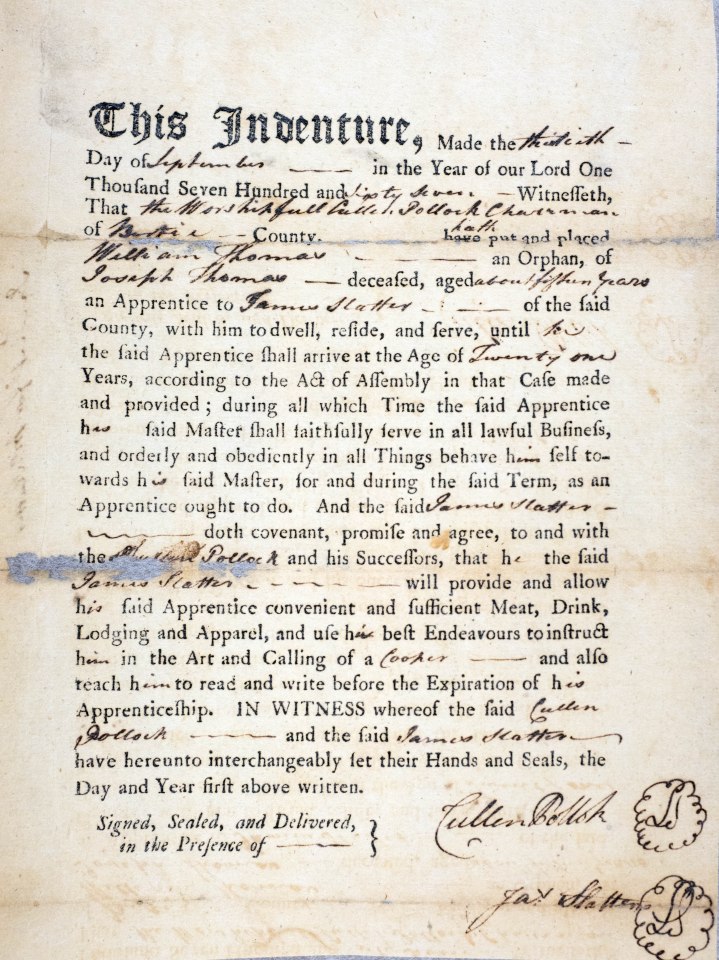 This Indenture, Made the thirtieth –
Day of September —— in the Year of our Lord One
Thousand Seven Hundred and sixty seven – Witnesseth,
That the Worshipfull Cullen Pollock Chairman
of Bertie – County. hath have put and placed
William Thomas - —— an Orphan, of
Joseph Thomas —— deceased, aged about fifteen Years
an Apprentice to James Slatter - —— of the said
County, with him to dwell, reside, and serve, until he
the said Apprentice shall arrive at the Age of Twenty one
Years, according to the Act of Assembly in that Case made
and provided; during all which Time the said Apprentice
his said Master shall faithfully serve in all lawful Business,
and orderly and obediently in all Things behave him self to-
wards his said Master, for and during the said Term, as an
Apprentice ought to do. And the said James Slatter –
—— doth covenant, promise and agree, to and with
the Pollock and his Successors, that he the said
James Slatter - —— will provide and allow
his said Apprentice convenient and sufficient Meat, Drink,
Lodging and Apparel, and use his best Endeavours to instruct
him in the Art and Calling of a Cooper —— and also
teach him to read and write before the Expiration of his
Apprenticeship. IN WITNESS whereof the said Cullen
Pollock —— and the said James Slatter
have hereunto interchangeably set their Hands and Seals, the
Day and Year first above written.
Signed, Sealed, and Delivered,
in the Presence of ——
Cullen Pollok
Jas Slatter